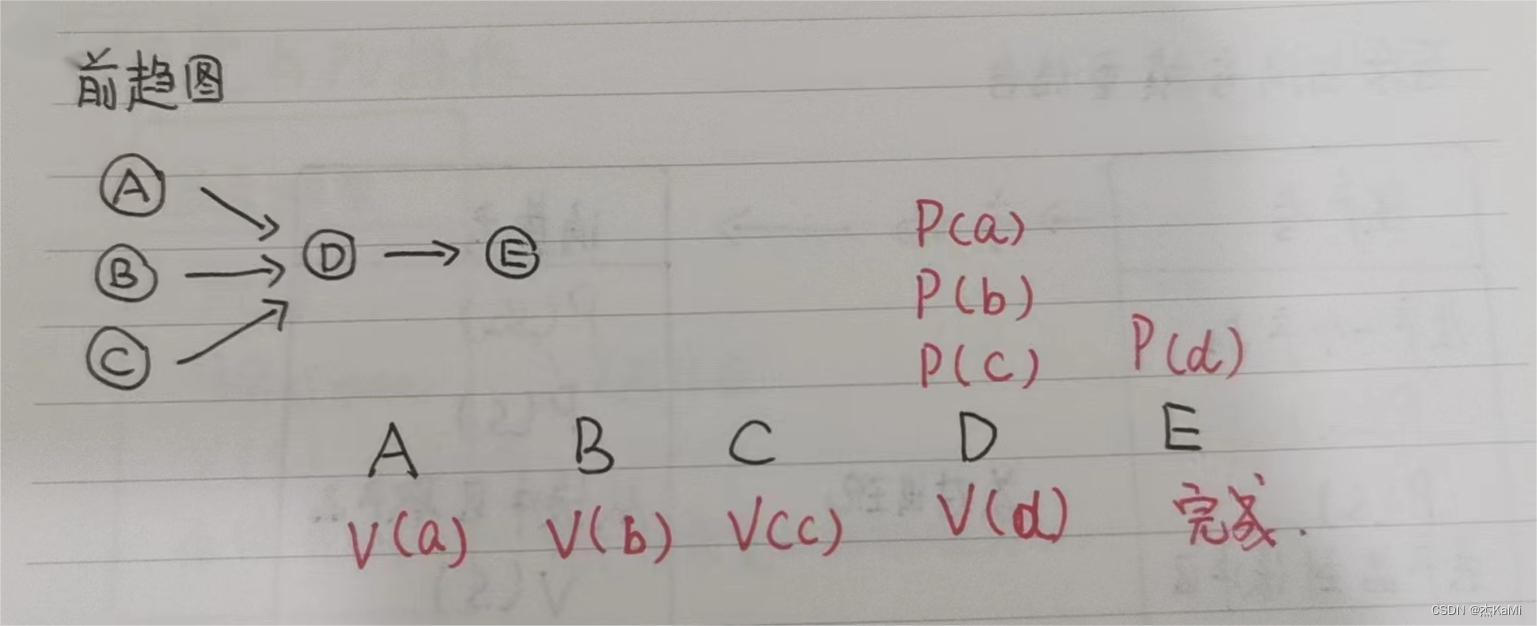 前趋图
A
B D E
C
P(a)
P(b)
P(c) P(d)
A B C D E
V(a) V(b) V(c) V(d) 完成.
CSDN @杰KaMi